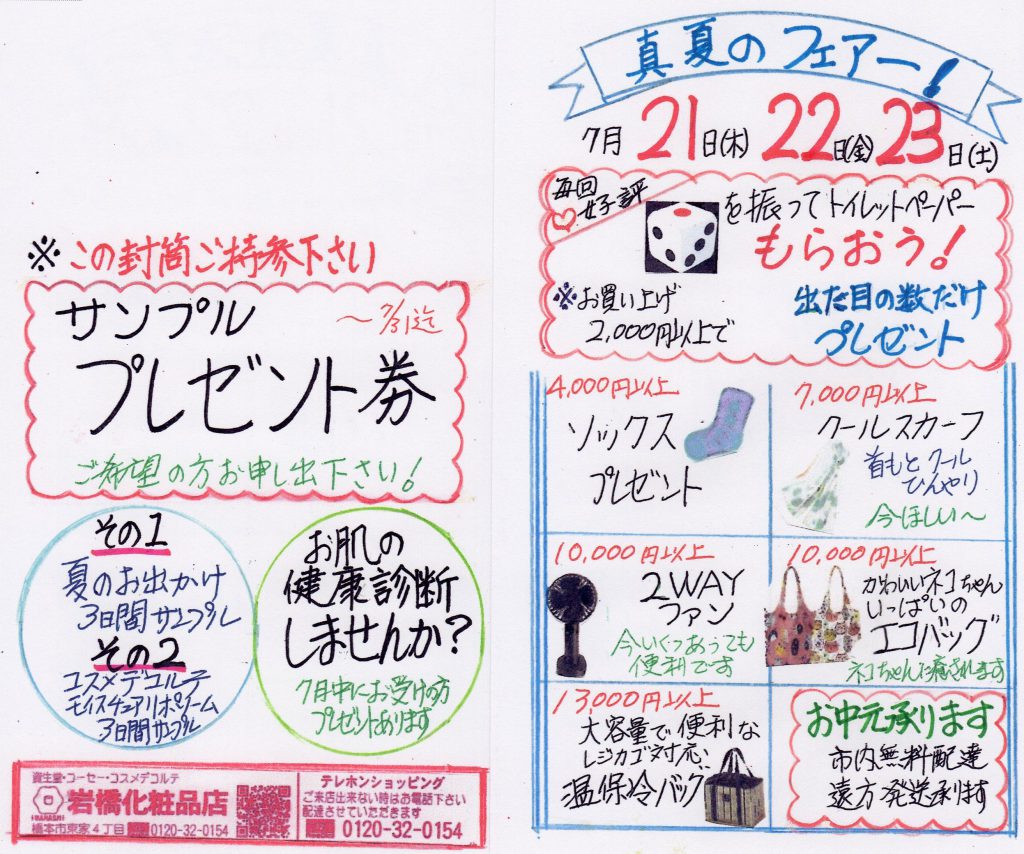 ※この封筒ご持参下さい
サンプル ～7/31迄
プレゼント券
ご希望の方お申し出下さい！
その1
夏のお出かけ
3日間サンプル
その2
コスメデコルテ
モイスチュアリポソーム
3日間サンプル
お肌の
健康診断
しませんか？
7月中にお受けの方
プレゼントあります
資生堂・コーセー・コスメデコルテ
岩橋化粧品店
IWAHASHI
橋本市東家4丁目 0120-32-0154
テレホンショッピング
ご来店出来ない時はお電話下さい
配達させていただきます
0120-32-0154
真夏のフェアー！
7月21日(木)22日(金)23日(土)
毎回
好評
を振ってトイレットペーパー
もらおう！
※お買い上げ
2,000円以上で
出た目の数だけ
プレゼント
4,000円以上
ソックス
プレゼント
7,000円以上
クールスカーフ
首もとクール
ひんやり
今ほしい～
10,000円以上
2WAY
ファン
今いくつあっても
便利です
10,000円以上
かわいいネコちゃん
いっぱいの
エコバッグ
ネコちゃんに癒されます
13,000円以上
大容量で便利な
レジカゴ対応
温保冷バック
お中元承ります
市内無料配達
遠方発送承ります